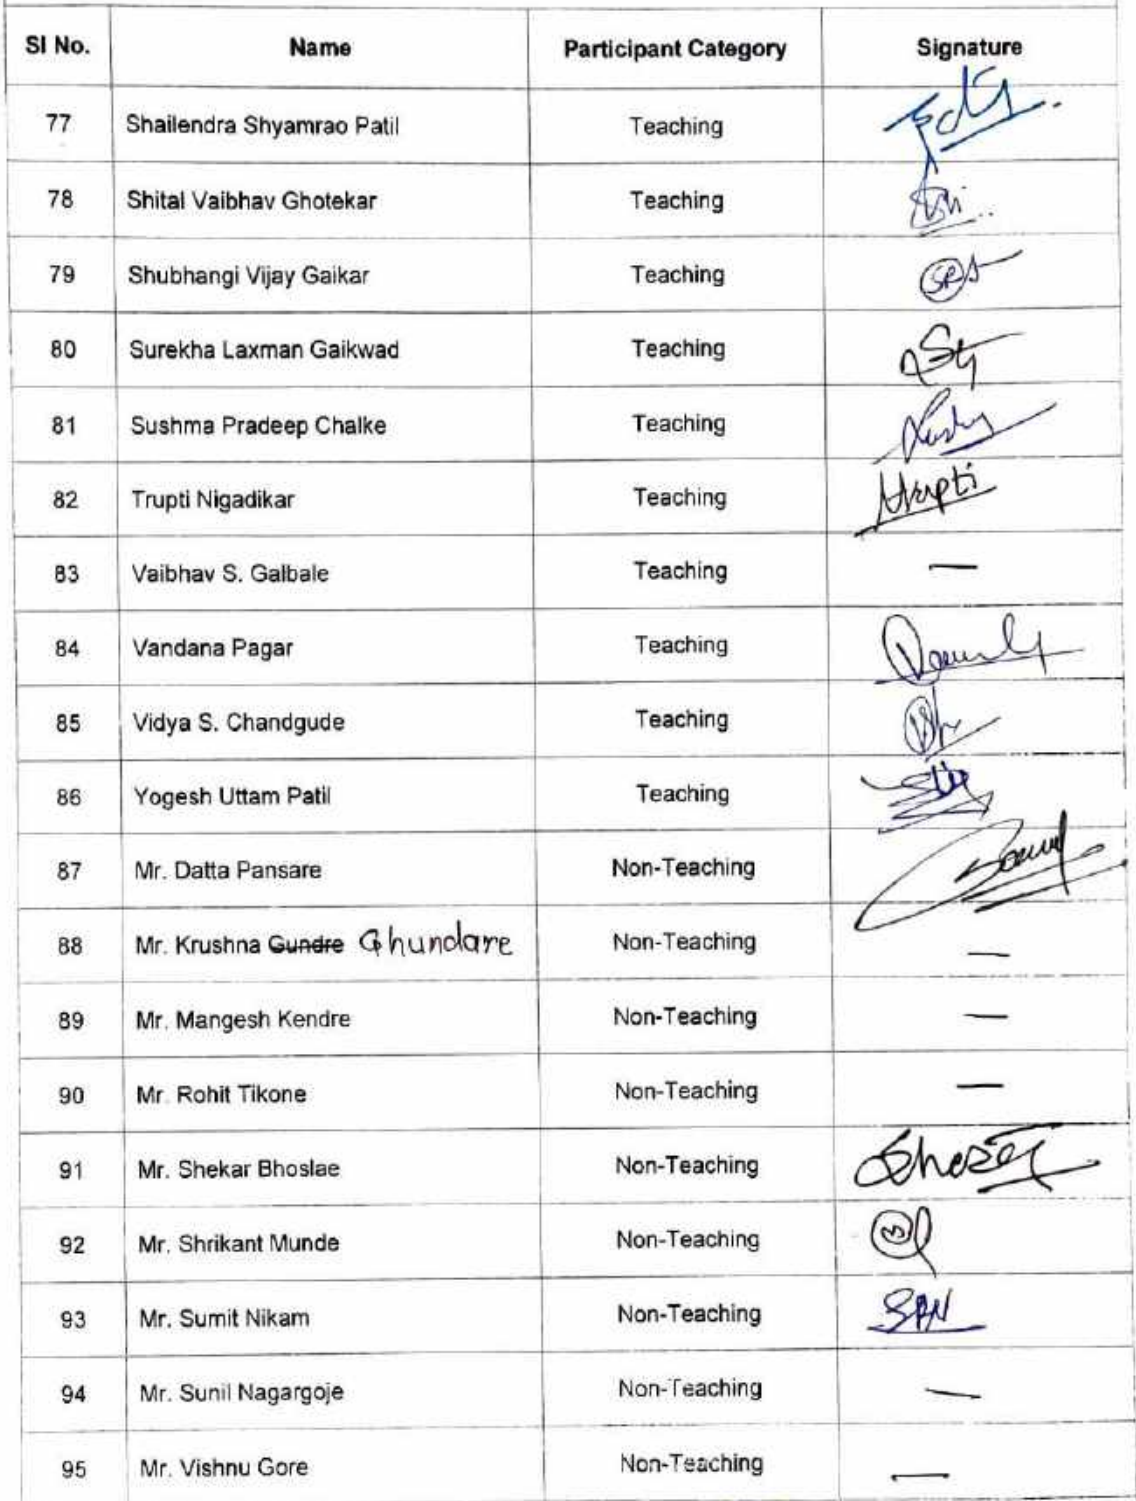 SI No. Name Participant Category Signature
77 Shailendra Shyamrao Patil Teaching
78 Shital Vaibhav Ghotekar Teaching
79 Shubhangi Vijay Gaikar Teaching
80 Surekha Laxman Gaikwad Teaching
81 Sushma Pradeep Chalke Teaching
82 Trupti Nigadikar Teaching Trupti
83 Vaibhav S. Galbale Teaching —
84 Vandana Pagar Teaching
85 Vidya S. Chandgude Teaching
86 Yogesh Uttam Patil Teaching
87 Mr. Datta Pansare Non-Teaching
88 Mr. Krushna Gundre Ghundare Non-Teaching —
89 Mr. Mangesh Kendre Non-Teaching —
90 Mr. Rohit Tikone Non-Teaching —
91 Mr. Shekar Bhoslae Non-Teaching
92 Mr. Shrikant Munde Non-Teaching
93 Mr. Sumit Nikam Non-Teaching SPN
94 Mr. Sunil Nagargoje Non-Teaching —
95 Mr. Vishnu Gore Non-Teaching —